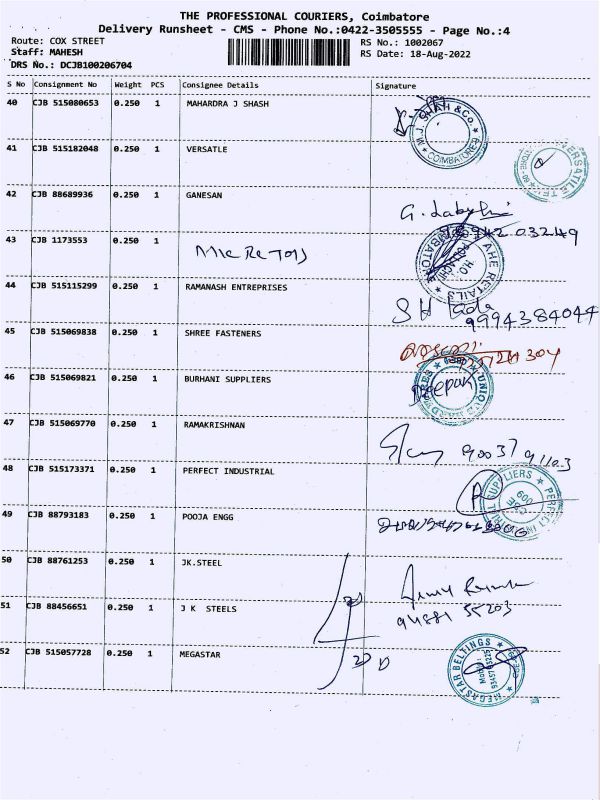 THE PROFESSIONAL COURIERS, Coimbatore
Delivery Runsheet - CMS - Phone No.:0422-3505555 - Page No.:4
Route: COX STREET
RS No.: 1002067
Staff: MAHESH
RS Date: 18-Aug-2022
DRS No.: DCJB100206704
S No Consignment No Weight PCS Consignee Details Signature
40 CJB 515080653 0.250 1 MAHARDRA J SHASH
SHAH & Co. M.J. COIMBATORE
41 CJB 515182048 0.250 1 VERSATLE
42 CJB 88689936 0.250 1 GANESAN
G.
43 CJB 1173553 0.250 1
44 CJB 515115299 0.250 1 RAMANASH ENTREPRISES
9994384044
45 CJB 515069838 0.250 1 SHREE FASTENERS
46 CJB 515069821 0.250 1 BURHANI SUPPLIERS
Deepak
47 CJB 515069770 0.250 1 RAMAKRISHNAN
90037 91103
48 CJB 515173371 0.250 1 PERFECT INDUSTRIAL
49 CJB 88793183 0.250 1 POOJA ENGG
50 CJB 88761253 0.250 1 JK.STEEL
51 CJB 88456651 0.250 1 J K STEELS
94881 55203
52 CJB 515057728 0.250 1 MEGASTAR
MEGASTAR BELTINGS